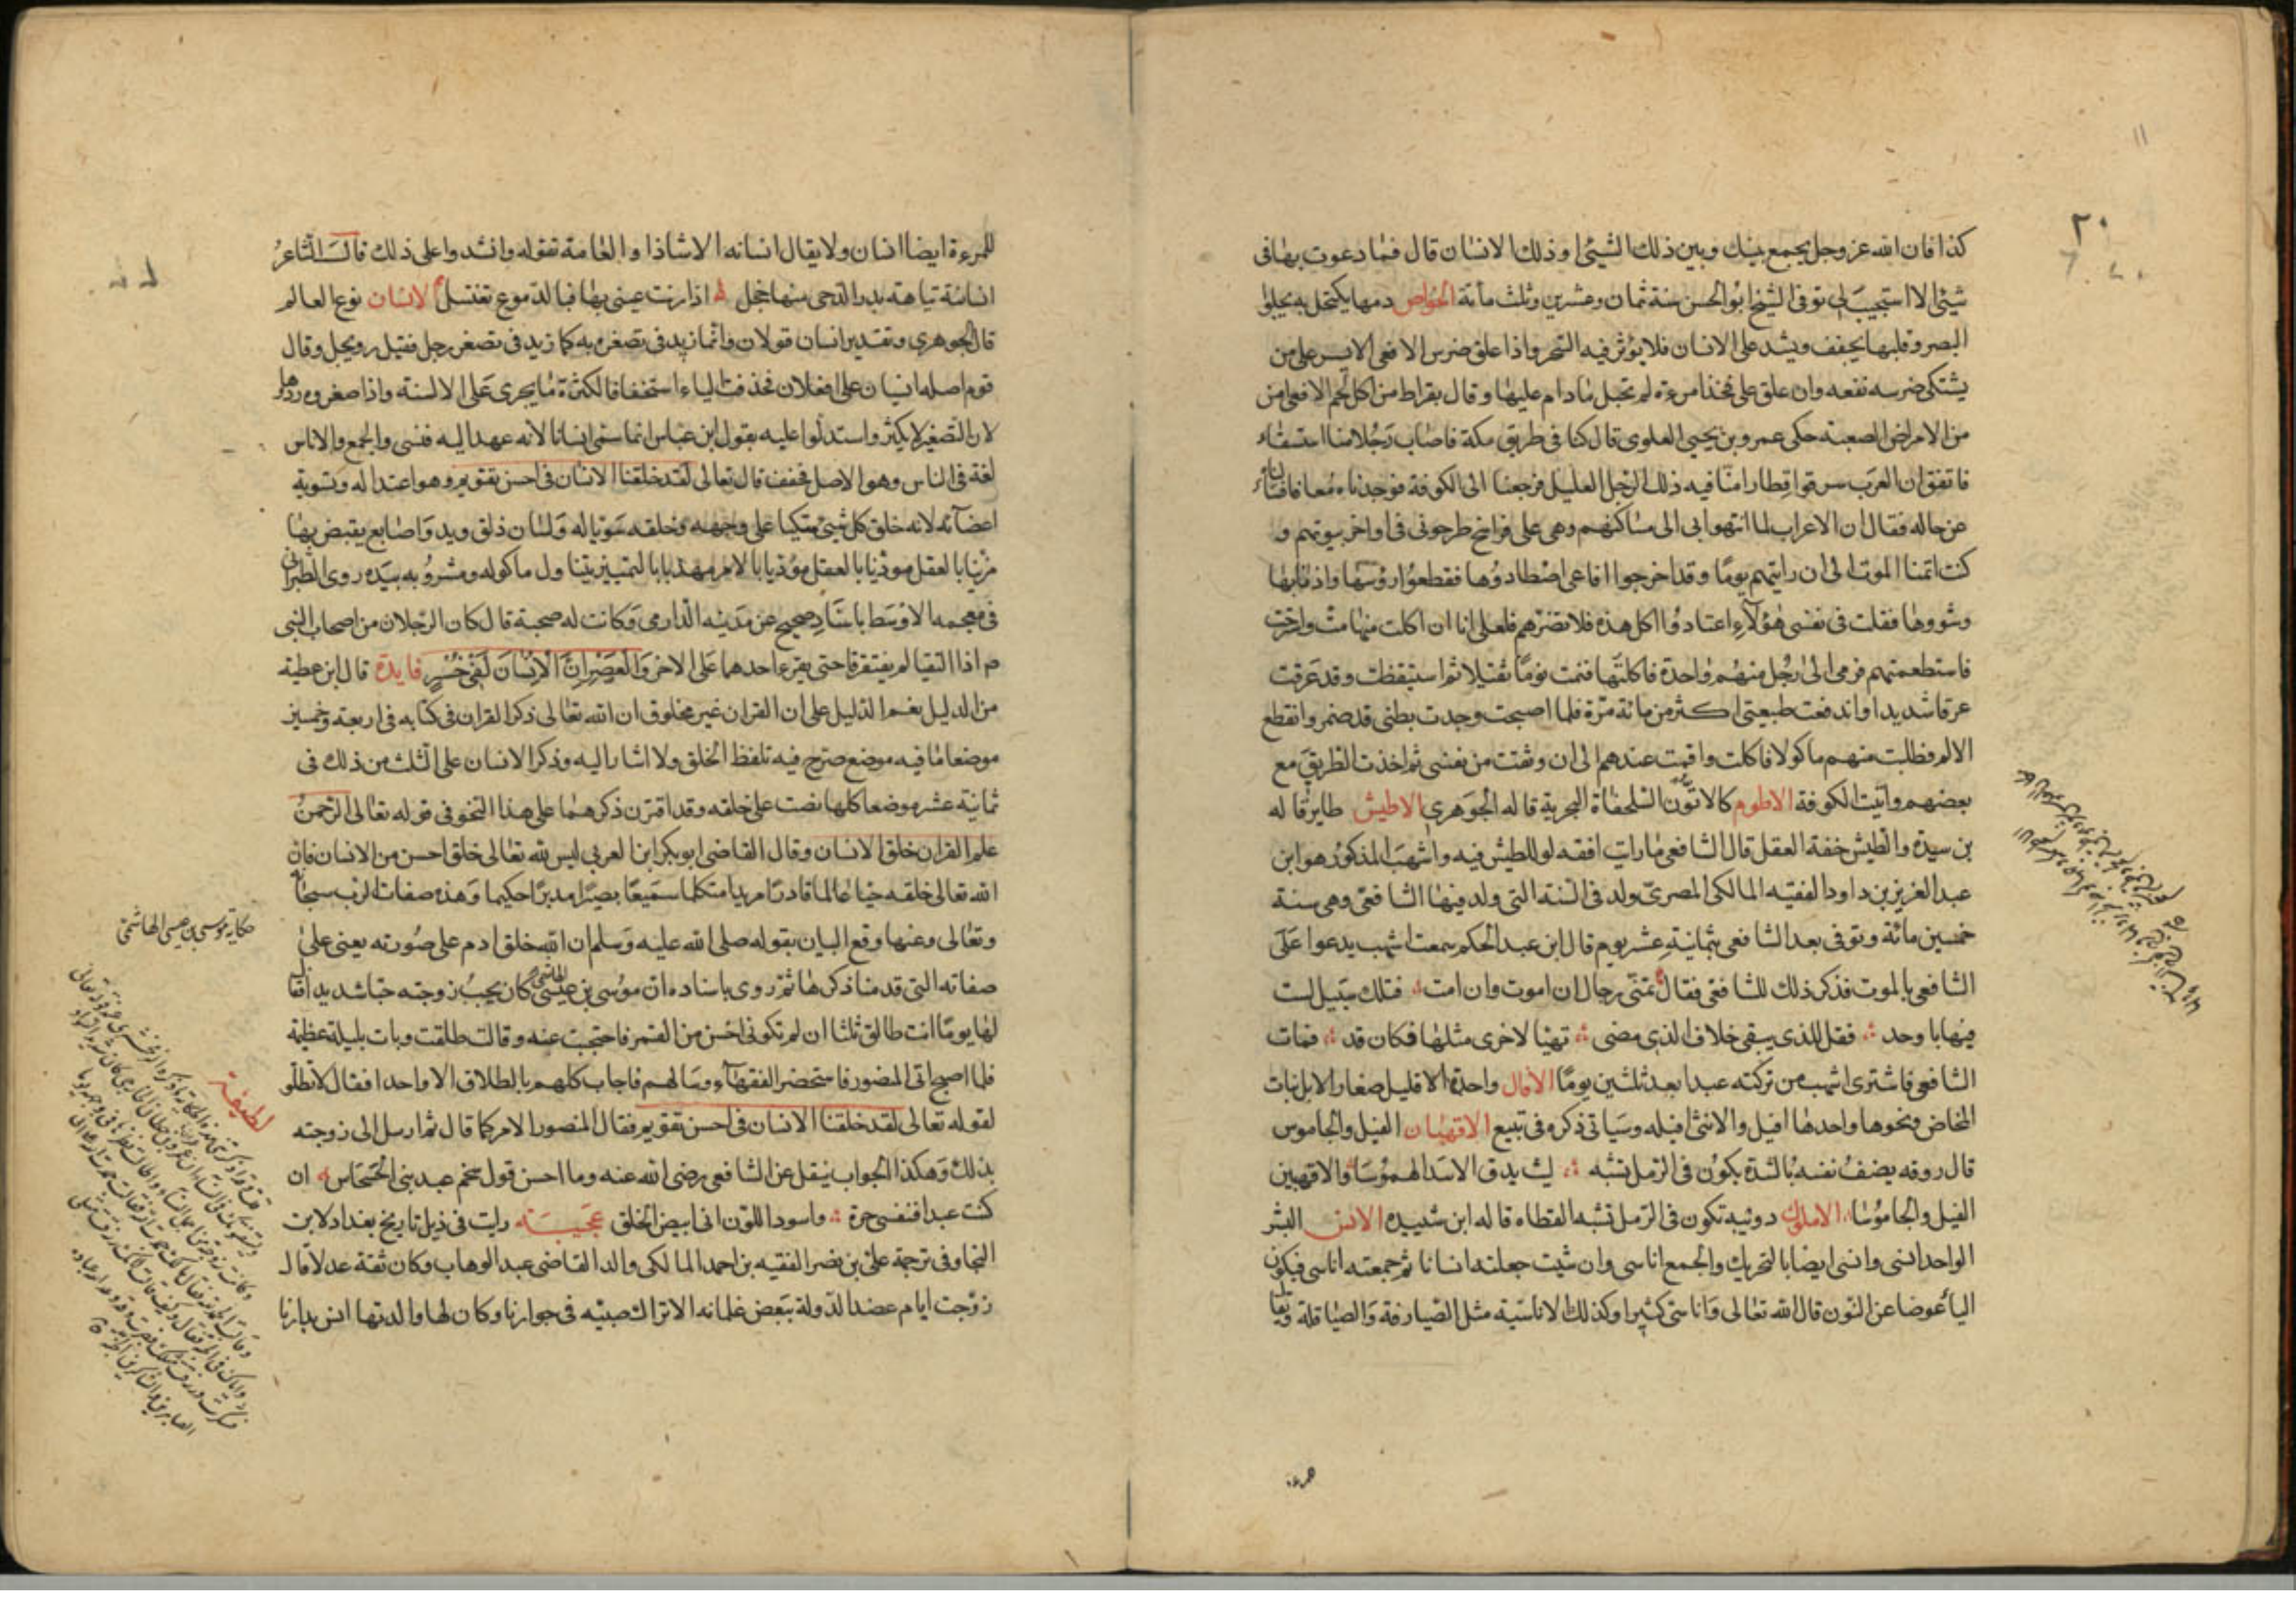 ٢٠
كذا فان الله عز وجل يجمع بينك وبين ذلك الشيئ او ذلك الانسان قال فما دعوت بها فى
شيئ الا استجيب لى توفى الشيخ ابو الحسن سنة ثمان وعشرين وثلث مأئة الخواص دمها يكتحل به يجلو
البصر وقلبها يجفف ويشد على الانسان فلا يؤثر فيه السحر واذا علق ضرس الافعى الايسر على من
يشتكى ضرسه نفعه وان علق على فخذ امرءة لم تحبل مادام عليها وقال بقراط من اكل لحم الافعى امن
من الامراض الصعبة حكى عمرو بن يحيى العلوى قال كنا فى طريق مكة فاصاب رجلا منا استسقاء
فاتفق ان العرب سرقوا قطارا منا فيه ذلك الرجل العليل فرجعنا الى الكوفة فوجدناه معافا فسألناه
عن حاله فقال ان الاعراب لما انتهوا بى الى مساكنهم وهى على فراسخ طرحونى فى اواخر بيوتهم و
كنت اتمنا الموت الى ان رايتهم يوما وقد اخرجوا افاعى اصطادوها فقطعوا رؤسها واذنابها
وشووها فقلت فى نفسى هؤلآء اعتادوا اكل هذه فلا تضرهم فلعلى انا ان اكلت منها مت واسترحت
فاستطعمتهم فرمى الىٰ رجل منهم واحدة فاكلتها فنمت نوما ثقيلا ثم استيقظت وقد عرقت
عرقا شديدا واندفعت طبيعتى اكثر من مائة مرة فلما اصبحت وجدت بطنى قد ضمر وانقطع
الالم فطلبت منهم ماكولا فاكلت واقمت عندهم الى ان وثقت من نفسى ثم اخذت الطريق مع
بعضهم واتيت الكوفة الاطوم كالاتون السلحفاة البحرية قاله الجوهرى الاطيش طاير قاله
بن سيدة والطيش خفة العقل قال الشافعى ما رايت افقه لولا طيش فيه واشهب المذكور هو ابن
عبد العزيز بن داود الفقيه المالكى المصرى ولد فى السنة التى ولد فيها الشافعى وهى سنة
خمسين مائة وتوفى بعد الشافعى بثمانية عشر يوم قال ابن عبد الحكم سمعت اشهب يدعوا على
الشافعى بالموت فذكر ذلك للشافعى فقال تمنى رجال ان اموت وان امت فتلك سبيل لست
فيها باوحد فقل للذى يبقى خلاف الذى مضى تهيا لاخرى مثلها فكان قد فمات
الشافعى فاشترى اشهب من تركته عبدا بعد ثلثين يوما الافال واحدة الا قليل صغار الابل بنات
المخاض ونحوها واحدها افيل والانثى افيله وسياتى ذكره فى تبيع الاقهبان الفيل والجاموس
قال روقه يصف نفسه بالشدة يكون فى الرمل تشبه ليث يدق الاسد الهموسا والاقهبين
الفيل والجاموسا الاملوك دويبة تكون فى الرمل تشبه القطاه قاله ابن سيده الانس البشر
الواحد انسى وانسى ايضا بالتحريك والجمع اناسى وان شيت جعلته انسانا ثم جمعته اناسى فيكون
اليآ عوضا عن النون قال الله تعالى واناسى كثيرا وكذلك الاناسية مثل الصيارفة والصياقلة ويقا
للمرءة ايضا انسان ولا يقال انسانه الا شاذا والعامة تقوله وانشدوا على ذلك قالت الشاعر
انسانة تياهة بدر الدجى منها خجل اذا زنت عينى بها فبالدموع تغتسل الانسان نوع العالم
قال الجوهرى وتقدير انسان فولان وانما زيد فى تصغيره به كما زيد فى تصغير رجل فقيل رويجل وقال
قوم اصله انسيان على افعلان فحذفت الياء استخفافا لكثرة ما يجرى على الالسنة واذا صغروه ردوها
لان التصغير لا يكثر واستدلوا عليه بقول ابن عباس انما سمى انسانا لانه عهد اليه فنسى والجمع والاناس
لغة فى الناس وهو الاصل فخفف قال تعالى لقد خلقنا الانسان فى احسن تقويم وهو اعتداله وتسوية
اعضآئه لانه خلق كل شيئ منكبا على وجهه وخلقه سويا له ولسان ذلق ويد واصابع يقبض بها
مزينا بالعقل مؤديا بالامر مهذبا بالتمييز يتناول ماكوله ومشروبه بيده روى الطبرانى
فى معجمه الاوسط باسناد صحيح عن مدينه الدارمى وكانت له صحبة قال كان الرجلان من اصحاب النبى
م اذا التقيا لم يفترقا حتى يقرء احدهما على الاخر والعصر ان الانسان لفى خسر فايدة قال ابن عطية
من الدليل نعم الدليل على ان القران غير مخلوق ان الله تعالى ذكر القران فى كتابه فى اربعة وخمسين
موضعا ما فيه موضع صرح فيه بلفظ الخلق ولا اشار اليه وذكر الانسان على الثلث من ذلك فى
ثمانية عشر موضعا كلها نصت على خلقه وقد اقترن ذكرهما على هذا النحو فى قوله تعالى الرحمن
علم القران خلق الانسان وقال القاضى ابو بكر ابن العربى ليس لله تعالى خلق احسن من الانسان فان
الله تعالى خلقه حيا عالما قادرا مريدا متكلما سميعا بصيرا مدبرا حكيما وهذه صفات الرب سبحانه
وتعالى وعنها وقع البيان بقوله صلى الله عليه وسلم ان الله خلق ادم على صورته يعنى على
صفاته التى قدمنا ذكرها ثم روى باسناده ان موسى بن عيسى الهاشمى كان يحب زوجته حبا شديدا فقال
لها يوما انت طالق ثلثا ان لم تكونى احسن من القمر فاحتجبت عنه وقالت طلقت وبات بليلة عظيمة
فلما اصبح اتى المنصور فاستحضر الفقهآء وسالهم فاجاب كلهم بالطلاق الا واحدا فقال لا تطلق
لقوله تعالى لقد خلقنا الانسان فى احسن تقويم فقال المنصور الامر كما قال ثم ارسل الى زوجته
بذلك وهكذا الجواب ينقل عن الشافعى رضى الله عنه وما احسن قول سحيم عبد بنى الحسحاس ان
كنت عبدا فنفسى حرة واسود اللون انى ابيض الخلق عجيبة رايت فى ذيل تاريخ بغداد لابن
النجار فى ترجمة على بن نصر الفقيه بن احمد المالكى والد القاضى عبد الوهاب وكان ثقة عدلا قال
زوجت ايام عضد الدولة ببعض غلمانه الاتراك صبيه فى جوارنا وكان لها والدتها انس بدارنا
حكاية موسى بن عيسى الهاشمى
لطيفة